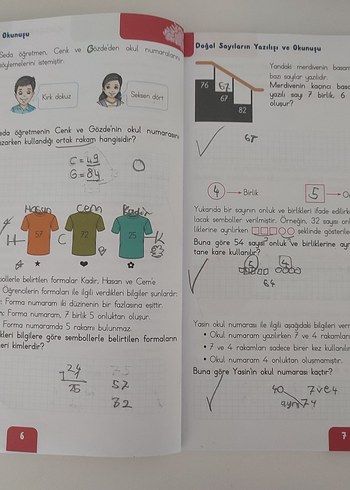 Okunuşu
Seda öğretmen, Cenk ve Gözde'den okul numaralarını
söylemelerini istemiştir.
Kırk dokuz
Seksen dört
Seda öğretmenin Cenk ve Gözde'nin okul numarasını
yazarken kullandığı ortak rakam hangisidir?
C = 49
G = 84
Hasan
Cem
Kadir
H
57
C
72
25
K
bollerle belirtilen formalar Kadir, Hasan ve Cem'e
Öğrencilerin formaları ile ilgili verdikleri bilgiler şunlardır:
: Forma numaram iki düzinenin bir fazlasına eşittir.
: Forma numaram, 7 birlik 5 onluktan oluşur.
: Forma numaramda 5 rakamı bulunmaz.
ikleri bilgilere göre sembollerle belirtilen formaların
leri kimlerdir?
24
1
25
52
32
6
Doğal Sayıların Yazılışı ve Okunuşu
76
67
67
82
Yandaki merdivenin basam
bazı sayılar yazılıdır.
Merdivenin kaçıncı basa
yazılı sayı 7 birlik, 6
oluşur?
4
Birlik
5
Yukarıda bir sayının onluk ve birlikleri ifade edilirk
lacak semboller verilmiştir. Örneğin, 32 sayısı onl
liklerine ayrılırken
şeklinde gösterile
Buna göre 54 sayısı onluk ve birliklerine ayrı
tane kare kullanılır?
5
4
Yasin okul numarası ile ilgili aşağıdaki bilgileri verm
• Okul numaram yazılırken 7 ve 4 rakamları
• 7 ve 4 rakamları sadece birer kez kullanılır
• Okul numaram 4 onluktan oluşmamıştır.
Buna göre Yasin'in okul numarası kaçtır?
40
7 ve 4
74
7